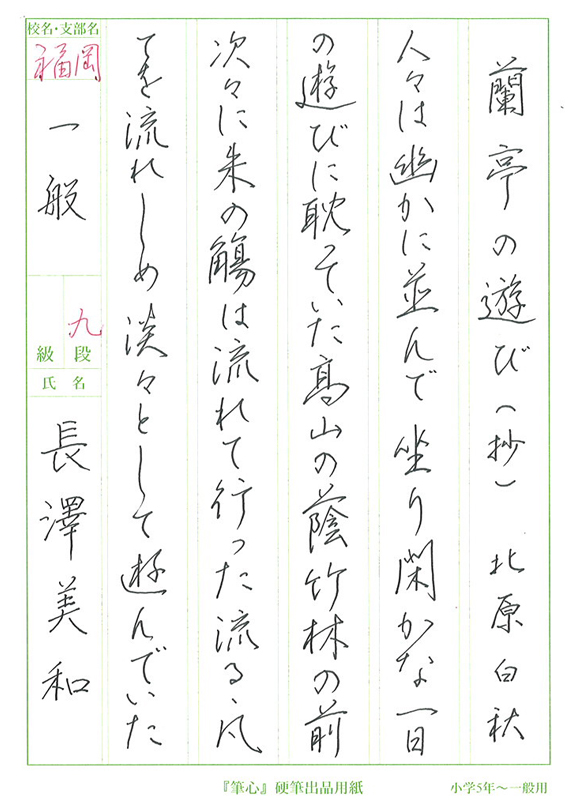 蘭亭の遊び(抄) 北原白秋
人々は幽かに並んで坐り閑かな一日
の遊びに耽っていた高山の蔭竹林の前
次々に朱の觴は流れて行った流るゝ凡
てを流れしめ淡々として遊んでいた
校名・支部名
福岡
一般
九
級 段
氏名
長澤美和
『筆心』硬筆出品用紙
小学5年~一般用